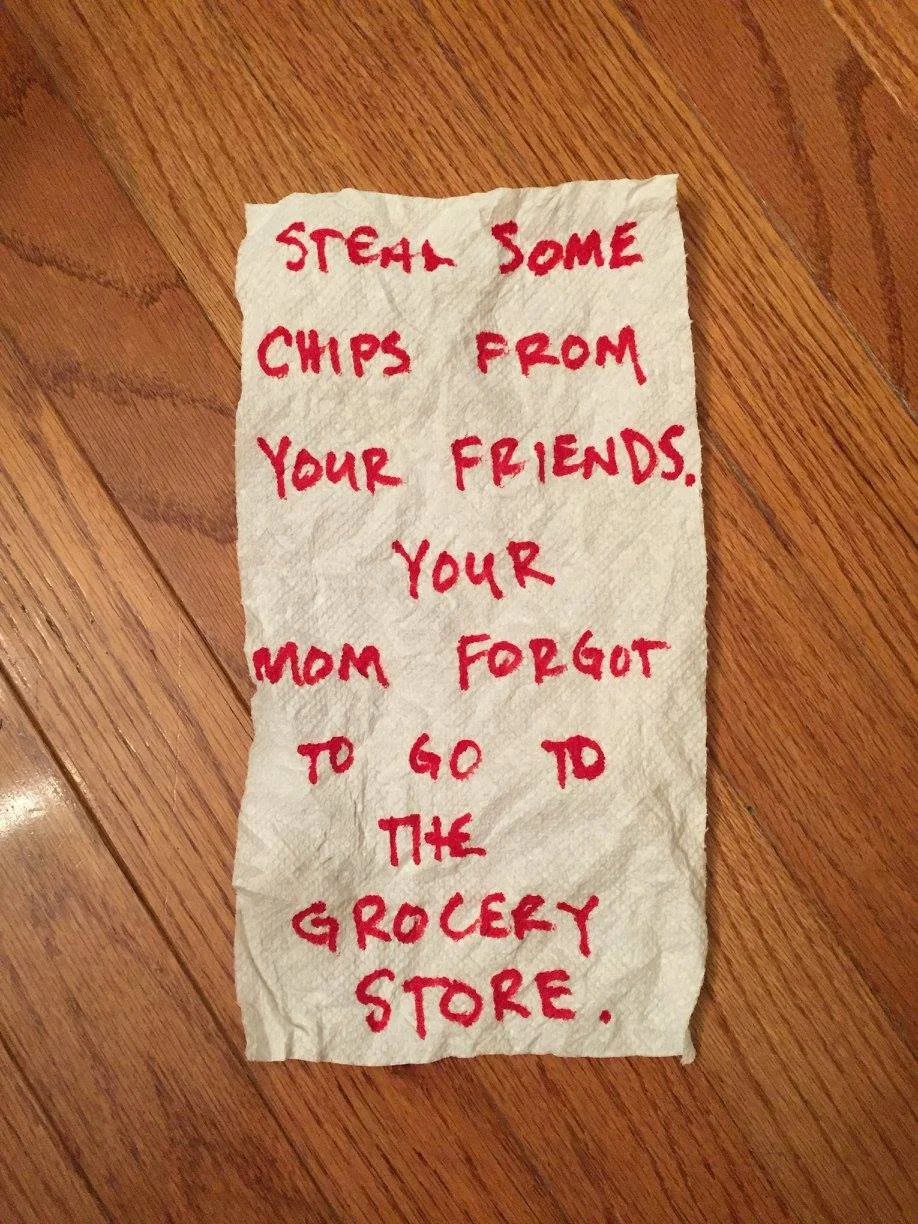 STEAL SOME
CHIPS FROM
YOUR FRIENDS.
YOUR
MOM FORGOT
TO GO TO
THE
GROCERY
STORE.